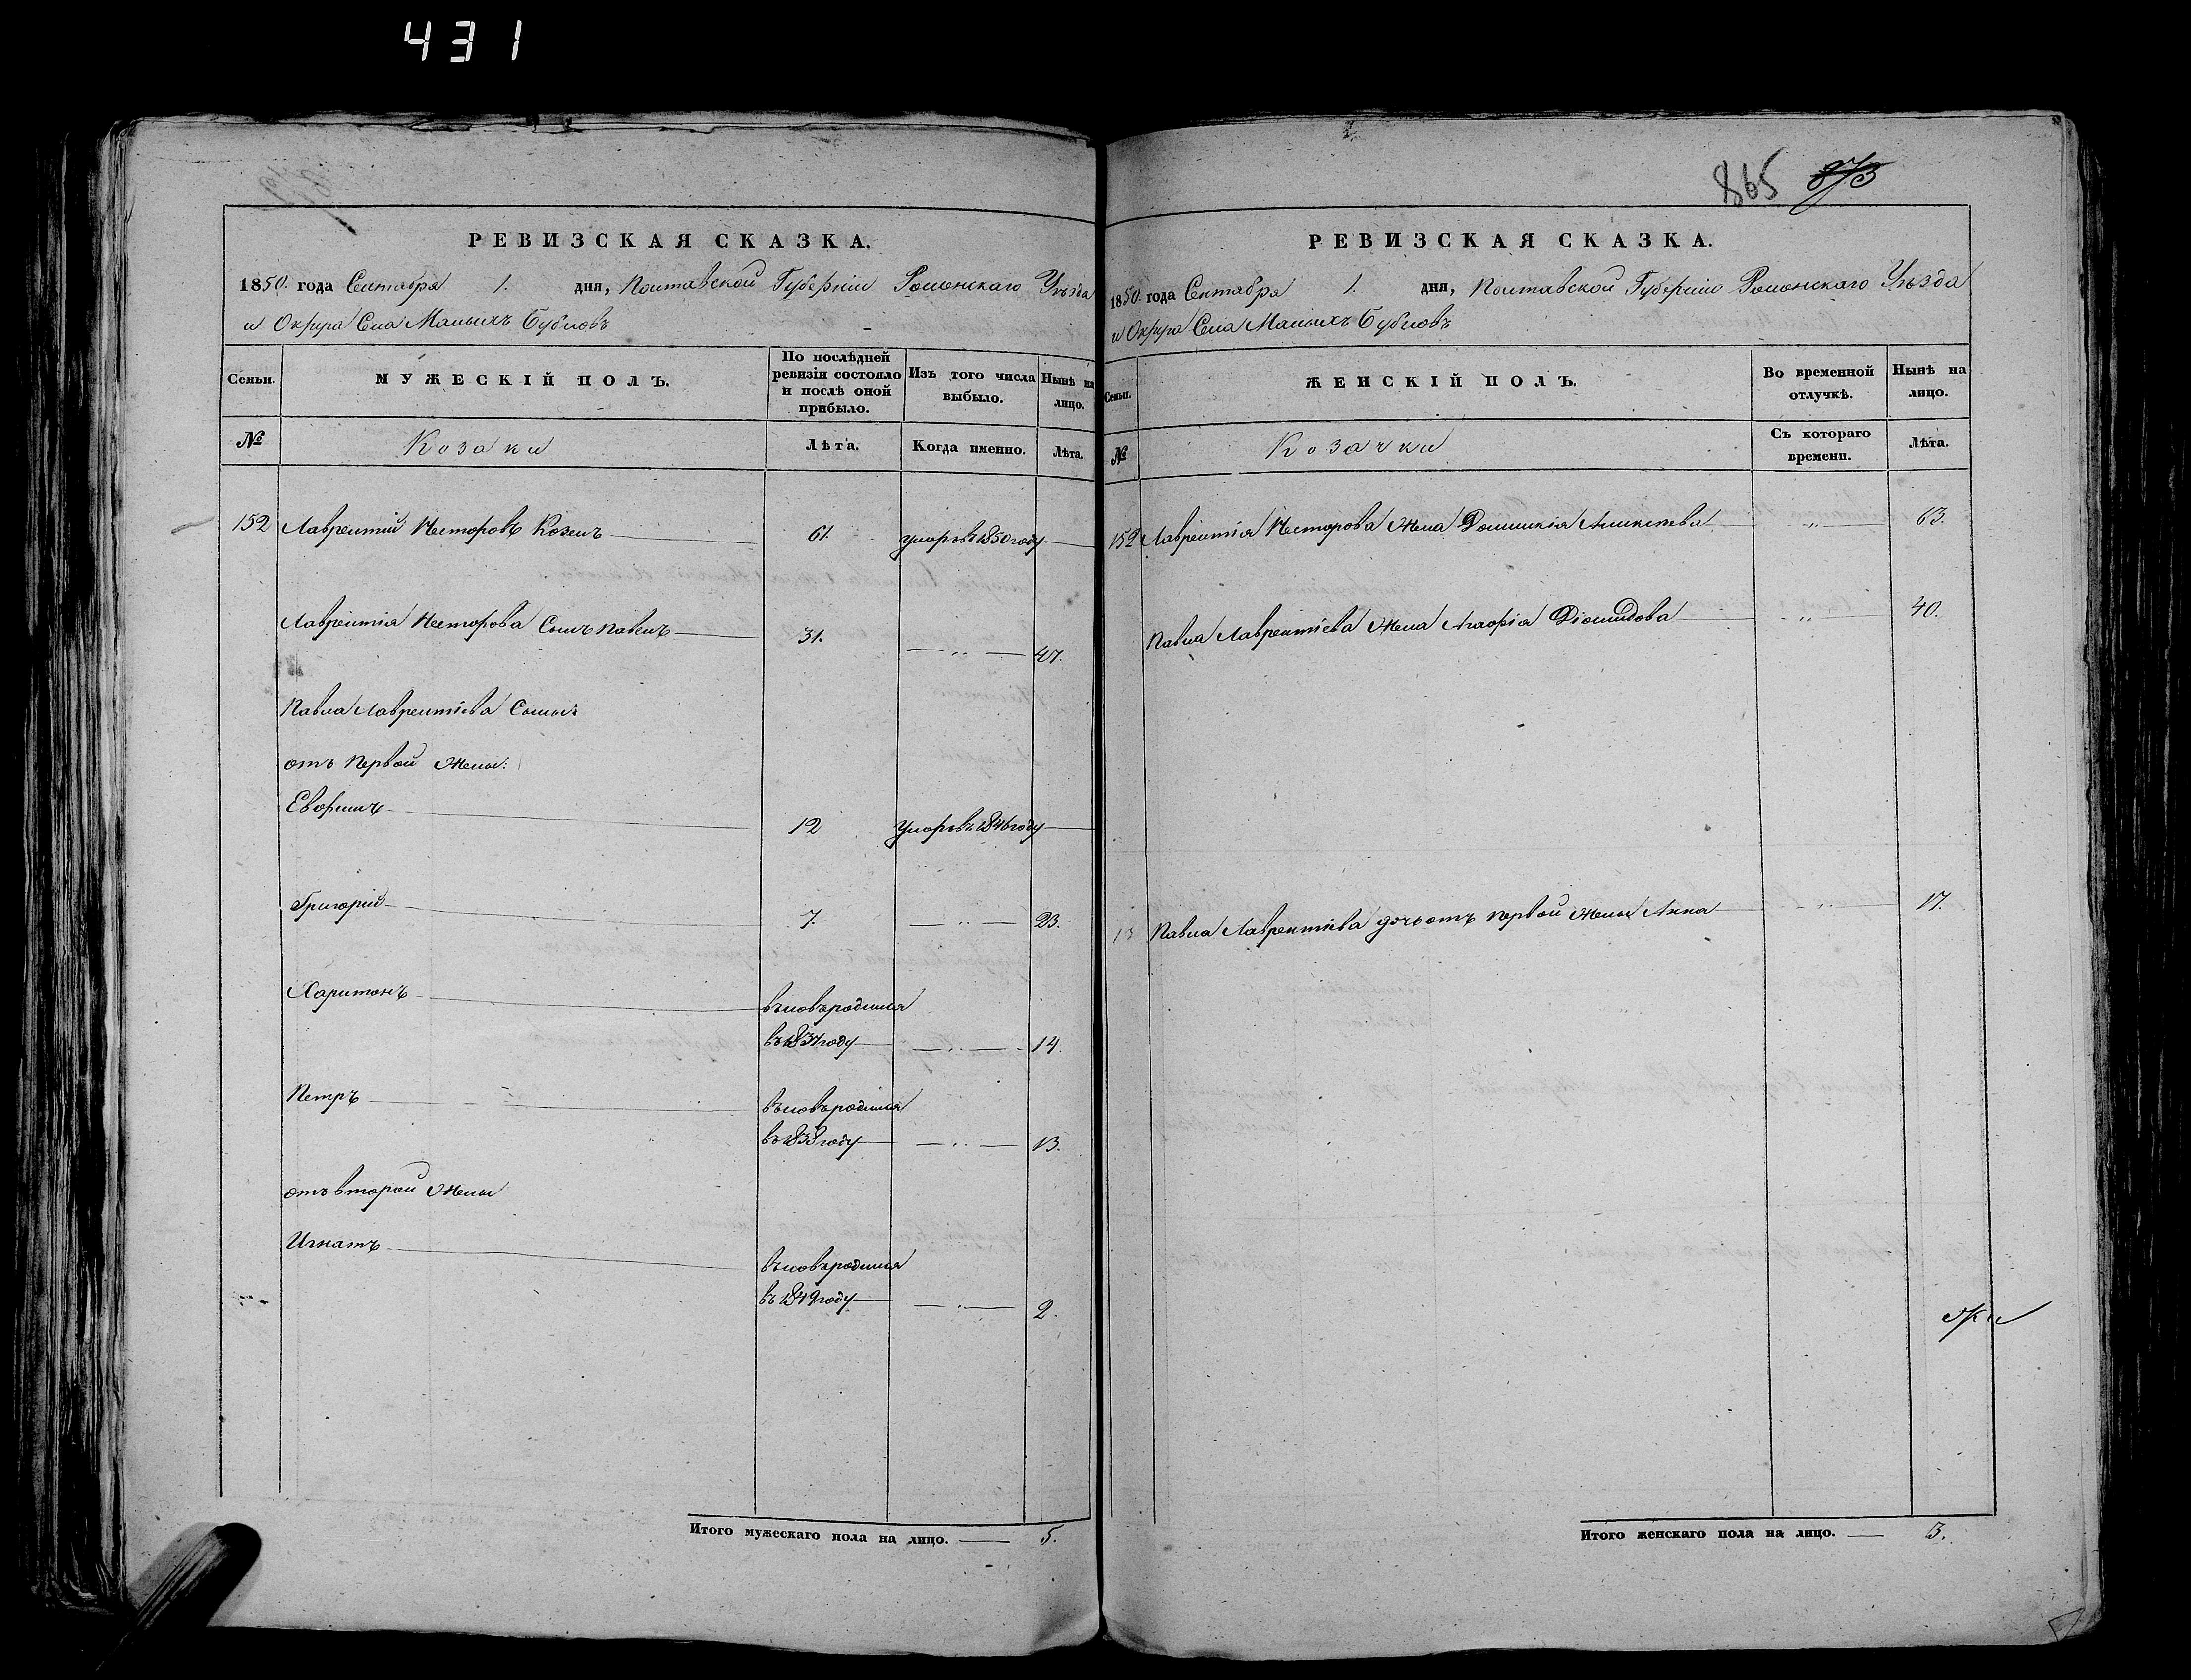 431
865 873
РЕВИЗСКАЯ СКАЗКА.
1850. года Сентября 1. дня, Полтавской Губерніи Роменскаго Уѣзда
и Округа Села Малыхъ Бубновъ
Семьи.
МУЖЕСКІЙ ПОЛЪ.
По послѣдней ревизіи состояло и послѣ оной прибыло.
Изъ того числа выбыло.
Нынѣ на лицо.
№
Козаки
Лѣта.
Когда именно.
Лѣта.
152 Лаврентій Несторовъ Козелъ 61. умеръ въ 1850 году
Лаврентія Несторова Сынъ Павелъ 31. — „ — 47.
Павла Лаврентіева Сыны:
отъ Первой Жены:
12 умеръ въ 1846 году
Григорій 7. — „ — 23.
Харитонъ вновь родился
въ 1837 году — „ — 14.
Петръ вновь родился
въ 1838 году — „ — 13.
отъ второй Жены
Игнатъ вновь родился
въ 1849 году — „ — 2.
Итого мужескаго пола на лицо. — 5.
РЕВИЗСКАЯ СКАЗКА.
1850. года Сентября 1. дня, Полтавской Губерніи Роменскаго Уѣзда
и Округа Села Малыхъ Бубновъ
Семьи.
ЖЕНСКІЙ ПОЛЪ.
Во временной отлучкѣ.
Нынѣ на лицо.
№
Козачки
Съ котораго времени.
Лѣта.
152 Лаврентія Несторова Жена Домникія Аликѣева — „ — 63.
Павла Лаврентіева Жена Агафія Діомидова — „ — 40.
Павла Лаврентіева дочь отъ первой жены Анна — „ — 17.
Итого женскаго пола на лицо. — 3.